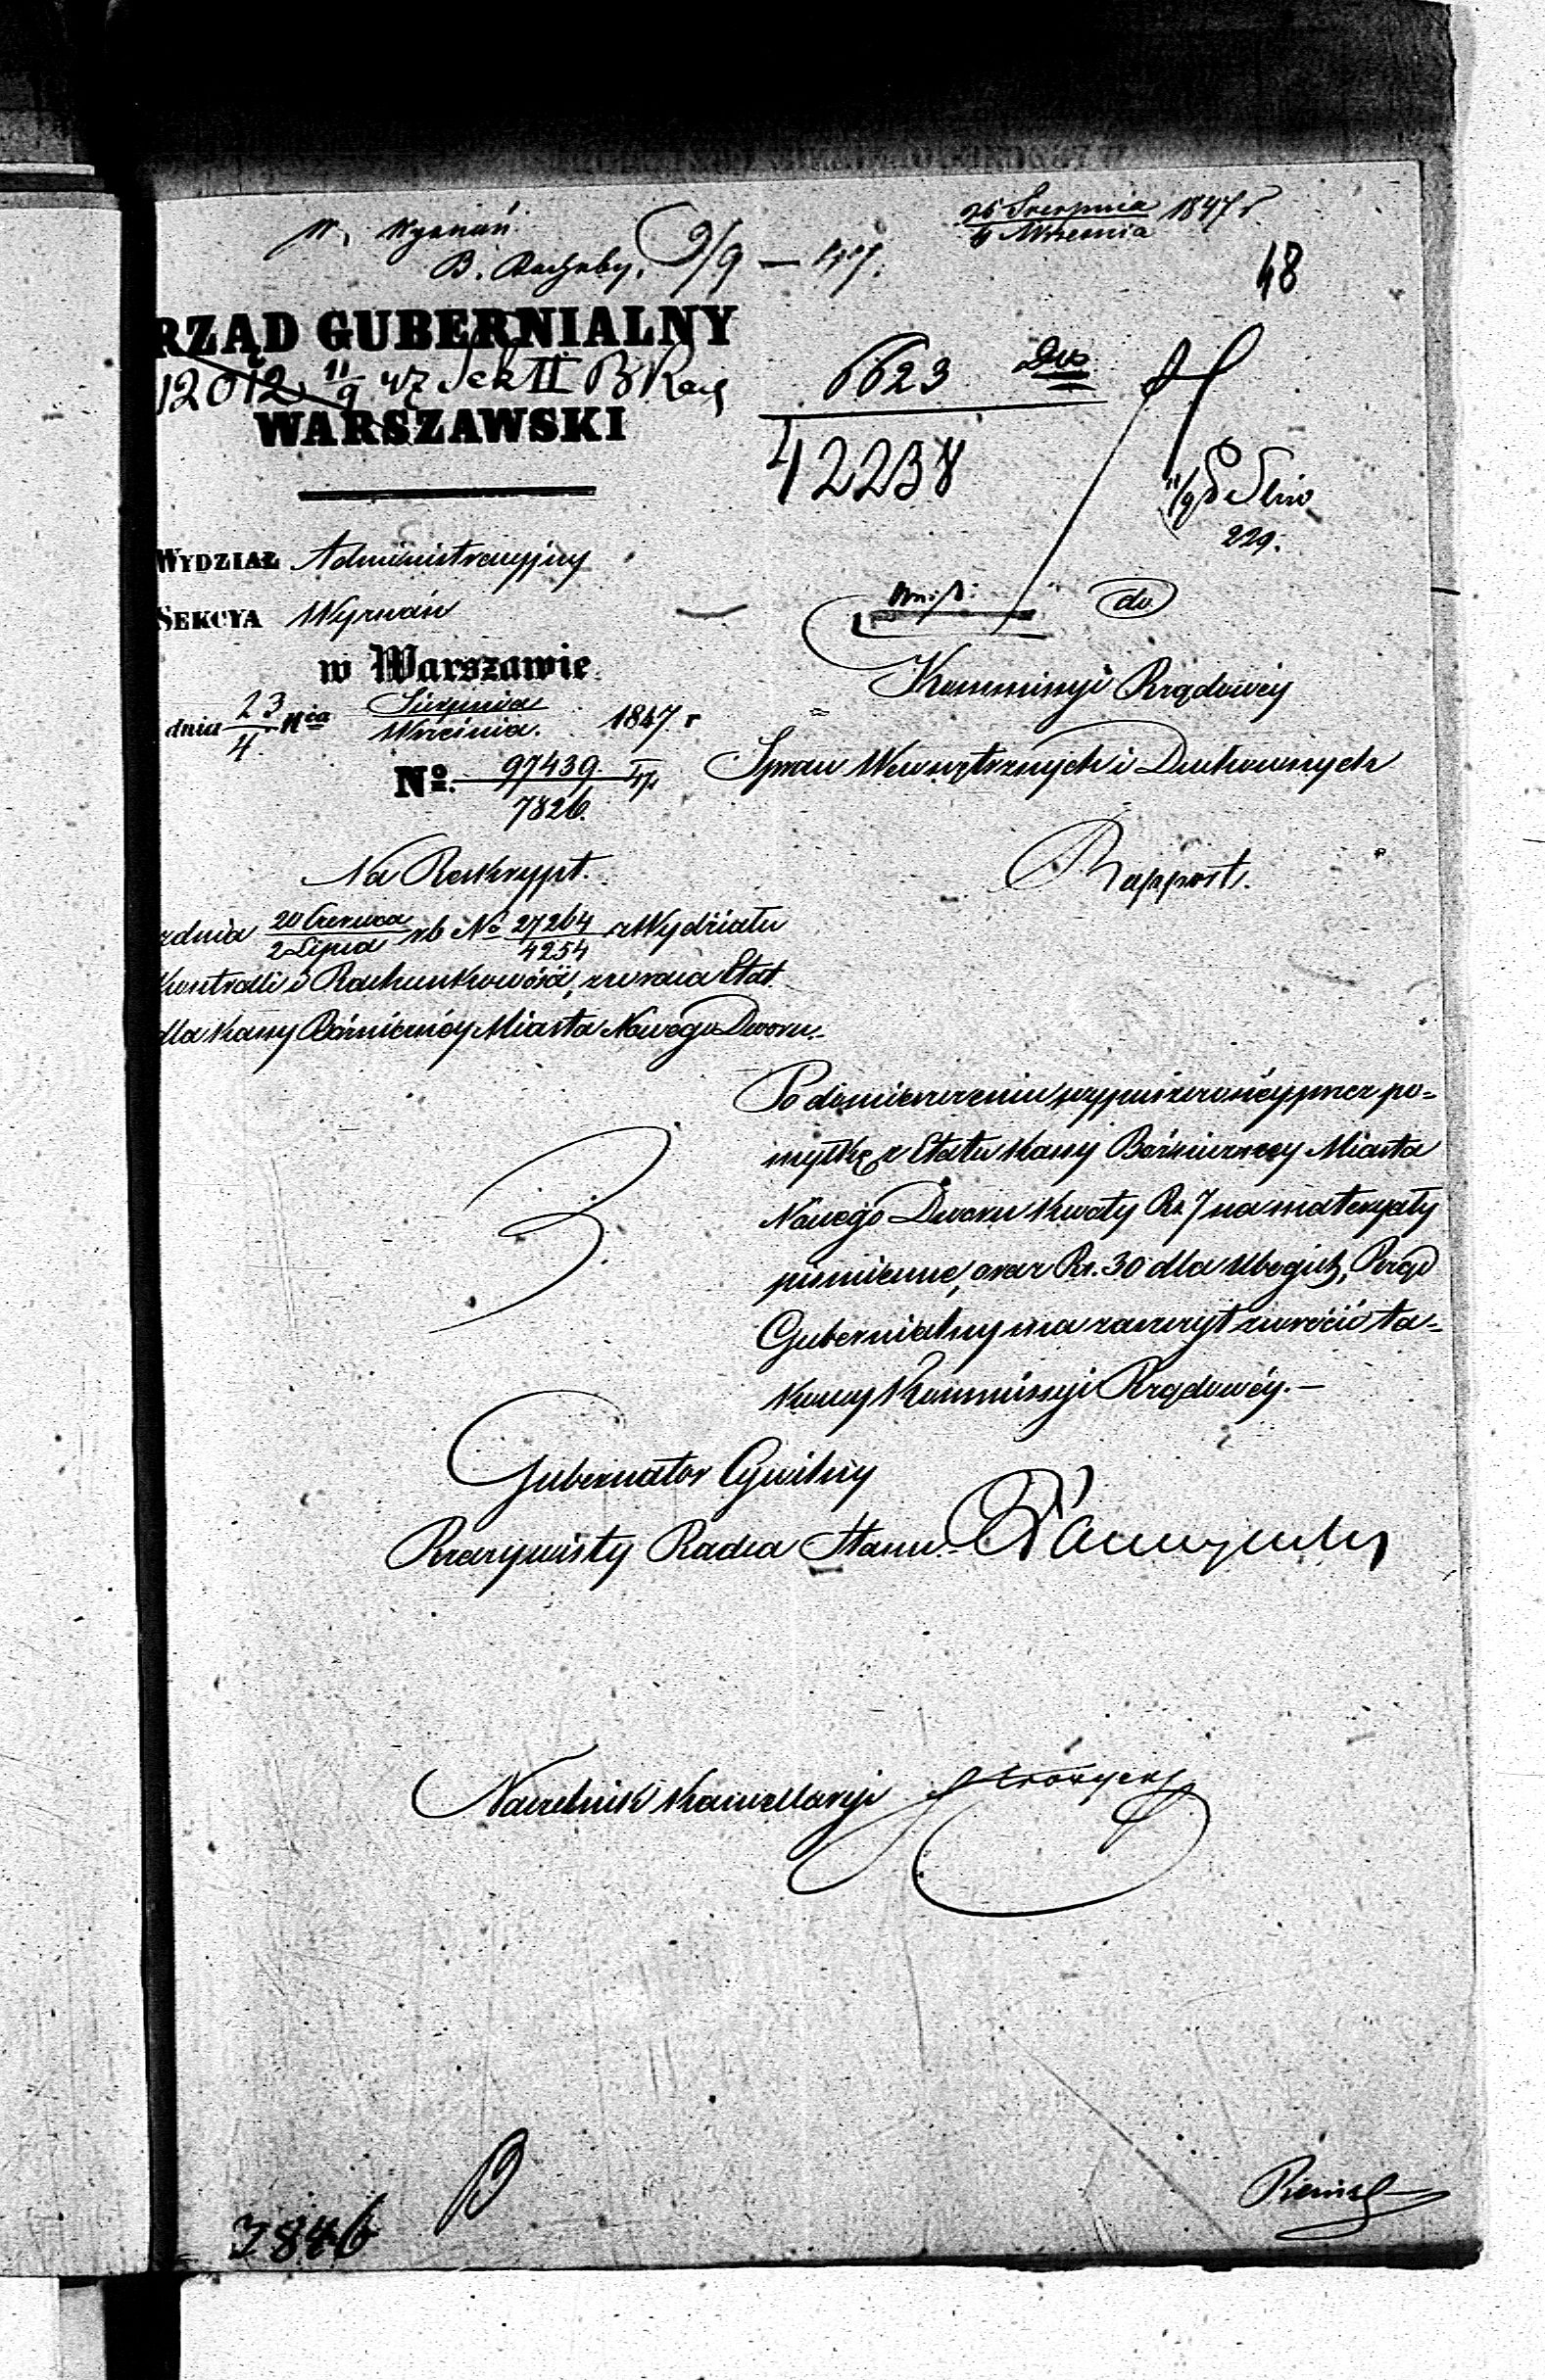 W. Wyznań
9/9 — 47.
26 Sierpnia / 4 Września 1847 r
48
RZĄD GUBERNIALNY
12012 11/9 wz Sek II B
WARSZAWSKI
6623
42238
11/9
229.
WYDZIAŁ Administracyjny
SEKCYA Wyznań
w Warszawie
dnia 23/4 Sierpnia / Września 1847 r
No. 97439 / 7826
do
Kommissyi Rządowéy
Spraw Wewnętrznych i Duchownych
Na Reskrypt.
Rapport.
z dnia 20 Czerwca / 2 Lipca rb No 27264 / 4254 z Wydziału
Kontrolli i Rachunkowości, zwraca Etat
dla Kassy Bóżniczéy Miasta Nowego Dworu.
Po domieszczeniu przepuszczonéy przez po=
myłkę z Etatu Kassy Bóżniczéy Miasta
Nowego Dworu kwoty Rs. 7 na materyały
piśmienne, oraz Rs. 30 dla ubogich, Rząd
Gubernialny ma zaszczyt zwrócić ta=
kowy Kommissyi Rządowéy.—
Gubernator Cywilny
Rzeczywisty Radca Stanu
Naczelnik Kancellaryi
7846